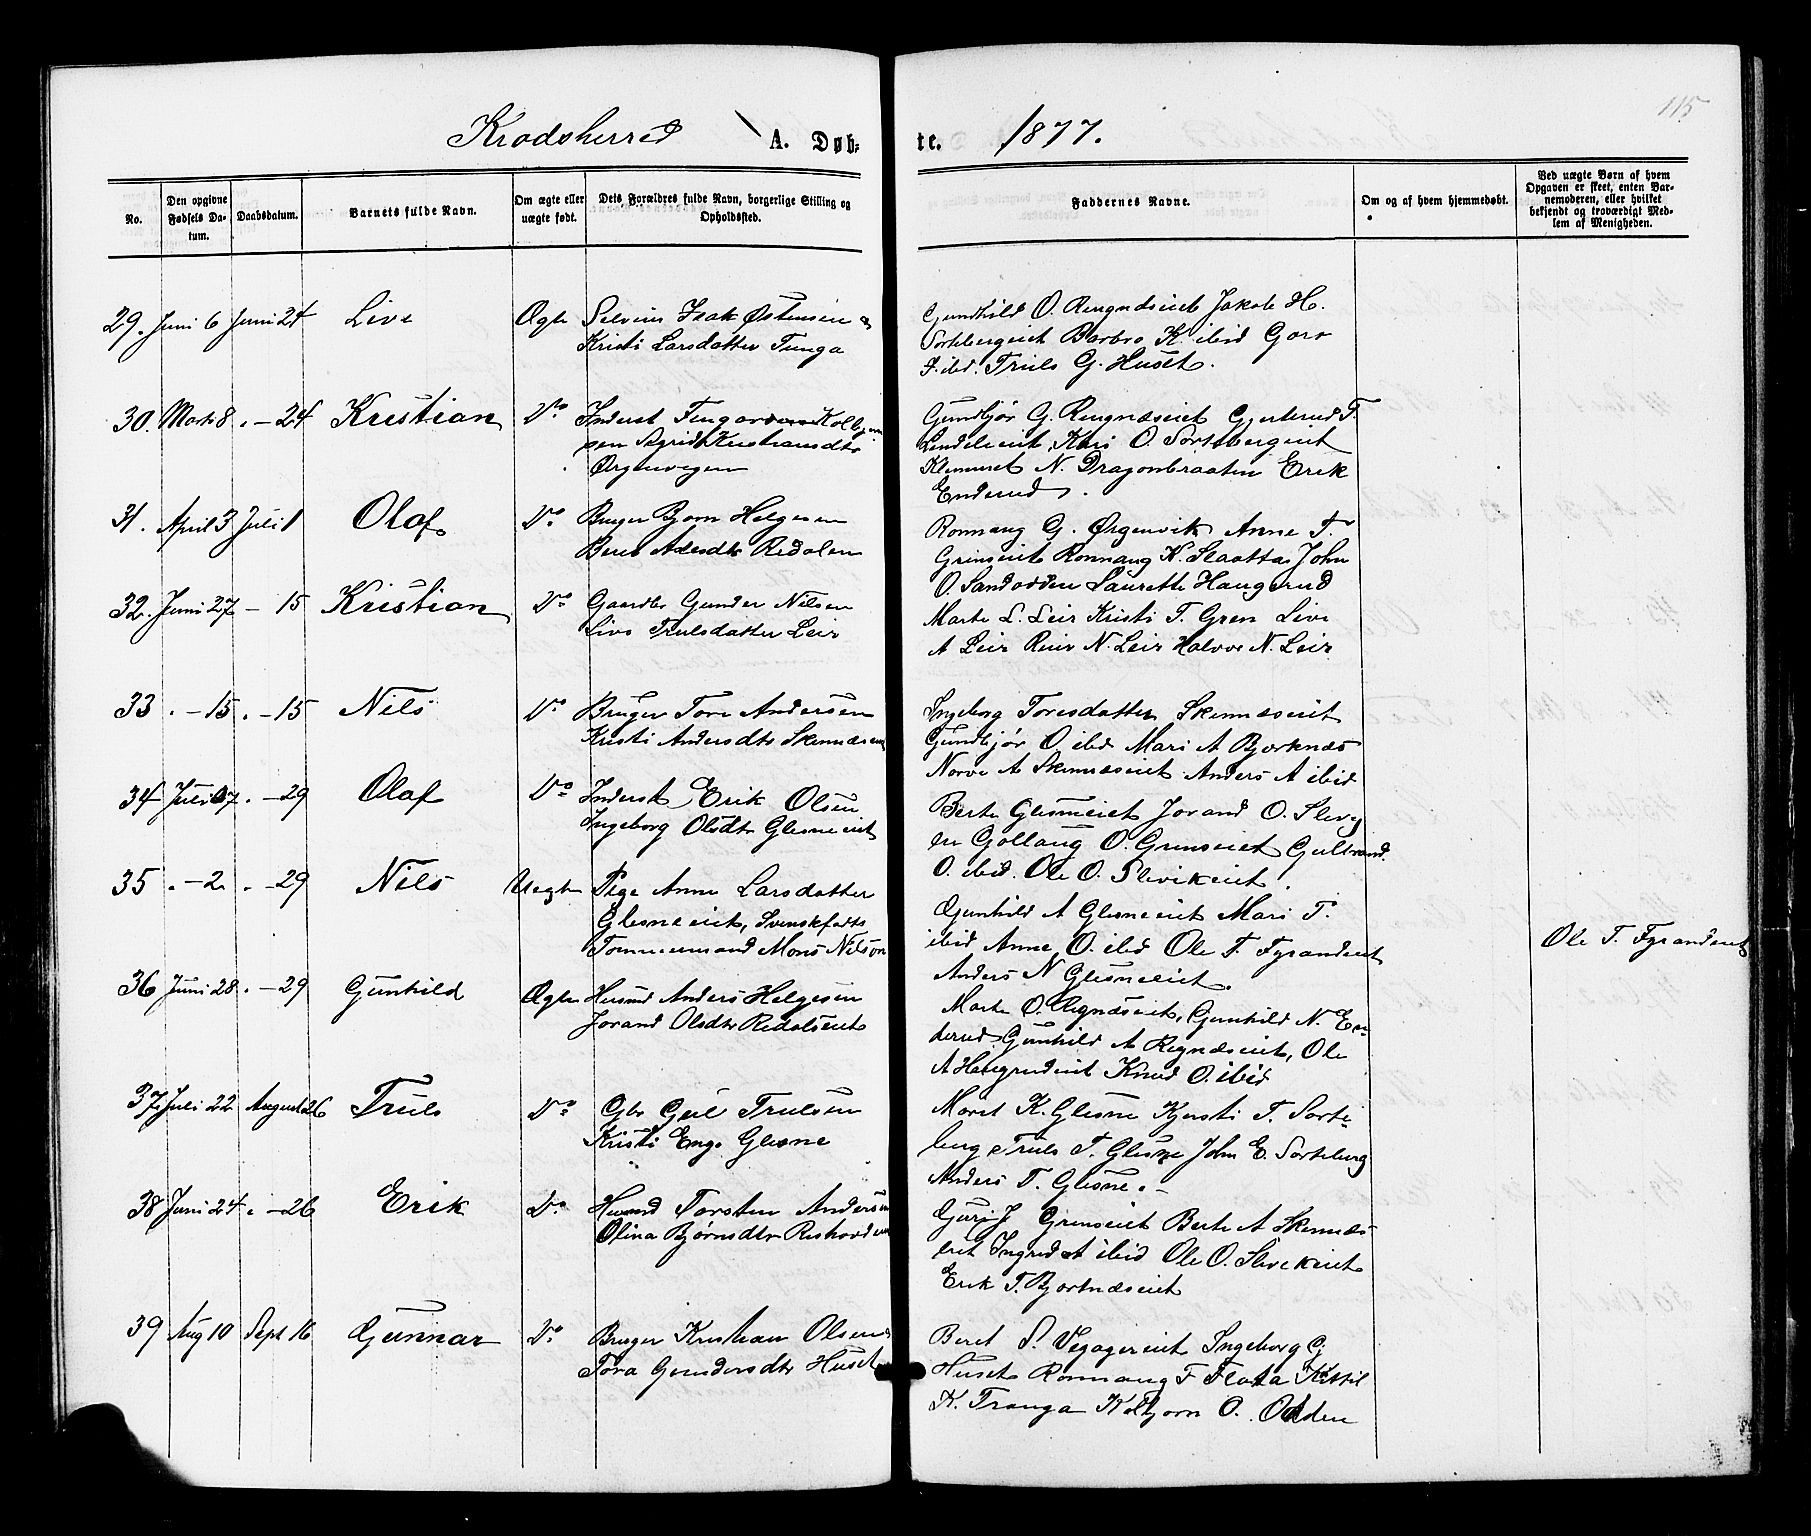 115
Krodsherred A. Døb-te. 1877.
No. Den opgivne Fødsels Datum. Daabsdatum. Barnets fulde Navn. Om ægte eller uægte født. Dets Forældres fulde Navn, borgerlige Stilling og Opholdssted. Faddernes Navne. Om og af hvem hjemmedøbt. Ved uægte Børn af hvem Opgaven er skeet, enten Barnemoderen, eller hvilket bekjendt og troværdigt Medlem af Menigheden.
29. Juni 6 Juni 24 Live Ægte Selveier Isak Østensen
Kristi Larsdatter Tunga
Gundhild O. Rengndseiet Jakob H.
Sorteberget Barbro K. ibid Goro
ibid. Truls G. Huset.
30. Marts 8 . - 24 Kristian Do Inderst
Kristiansdtr
Ørgenvegen
Gundbjør G. Rengnæseiet Gjerterud T.
Kari O. Sortebergeiet
N. Dragonbraaten Erik
Enderud.
31. April 3 Juli 1 Olaf Do Bruger Bjørn Helgesen
Beret Redolen
Ronnaug G. Ørgenvik Anne T.
Grinseiet Ronnaug K. Slaatta John
O. Sandodden Laurette Haugerud
32. Juni 27 - 15 Kristian Do Gaardbr Gunder Nilsen
Live Trulsdatter Leir
Marte L. Leir Kristi T. Gren Live
A Leir N. Leir Halvor N. Leir
33 . - 15 . - 15 Nils Do Bruger Tore Andersen
Kristi Andersdtr
Ingeborg Toresdatter Skinnæseiet
Gundbjør O ibid Mari A Bjørknæs
A Skinnæseiet Anders A ibid
34 Juli . - 29 Olaf Do Inderst Erik Olsen
Ingeborg Olsdtr Glesneeiet
Berte Glesneeiet Jorand O. Slevig
en Gollaug O. Grinseiet Gulbrand
O. ibid. Ole O. Slevikeiet.
35 . - 2 . - 29 Nils Uægte Pige Anne Larsdatter
Glesneeiet, Svenskfødte
Tømmermand Mons Nilson
Gunhild A Glesneeiet Mari T.
ibid Anne O. ibid Ole T. Fyrandeiet
Anders N Glesneeiet.
Ole T. Fyrandeiet
36 Juni 28 . - 29 Gunhild Ægte Husmd Anders Helgesen
Jorand Olsdtr Redalseiet
Marte O. Rignæseiet, Gunhild N. En-
derud Gunhild A Rignæseiet, Ole
A Haugrudeiet Knud O. ibid
37 Juli 22 August 26 Truls Do Gbr Trulsen
Kristi Glesne
Marit K. Glesne Kjersti T. Sorte-
berg Truls T. Glesne John E. Sorteberg
Anders T. Glesne. -
38 Juni 24 . - 26 Erik Do Torsten Andersen
Olina Bjørnsdtr
Guri J Grinseiet Berte A Skinnæs
eiet Ingrid A ibid Ole O. Slevikeiet
Erik T. Bjørknæseiet
39 Aug 10 Sept 16 Gunnar Do Bruger Kristian Olsen
Tora Gundersdtr Huset
Beret S. Ingeborg G
Huset Ronnaug F Flata Kittil
K. Tranga Kolbjørn O. Odden